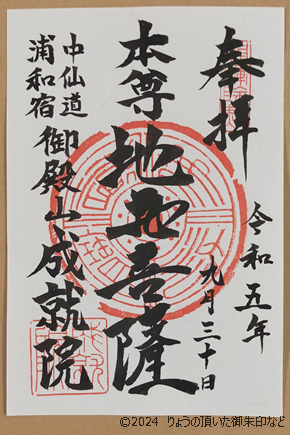 奉拝
令和五年
九月三十日
本尊
地蔵菩薩
中仙道
浦和宿
御殿山成就院
©2024 りょうの頂いた御朱印など